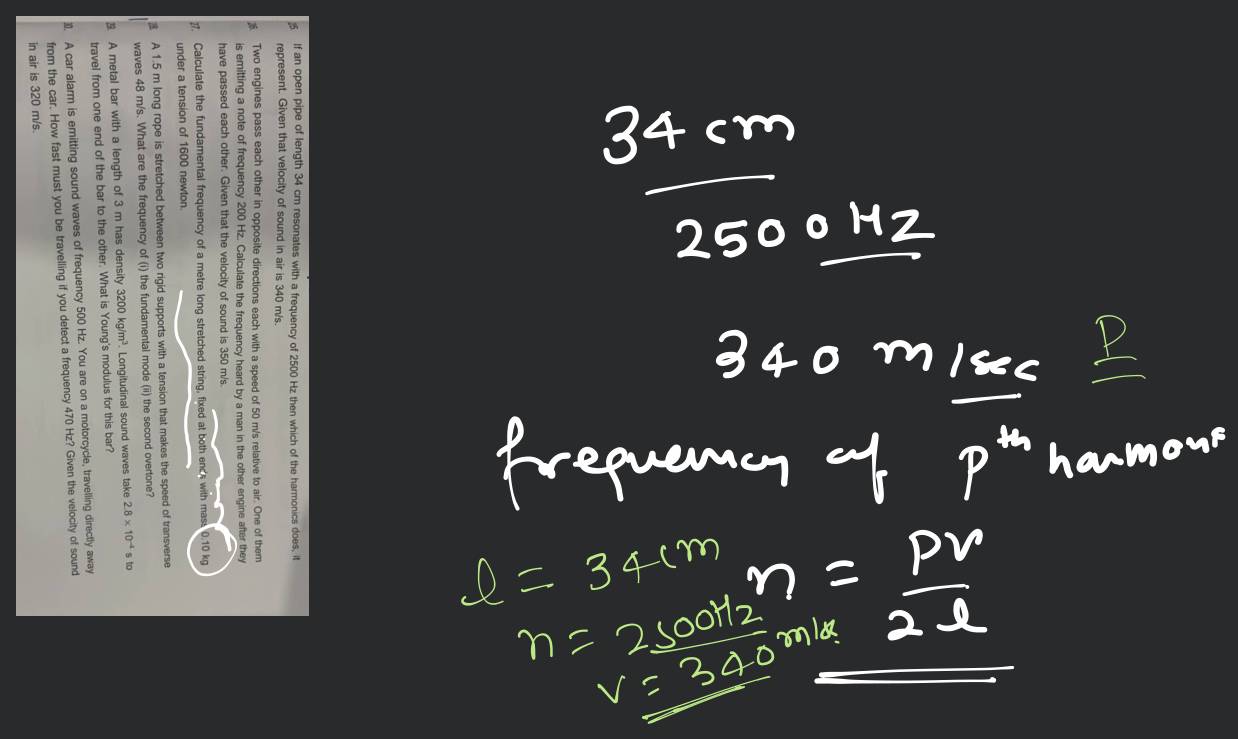 25. If an open pipe of length 34 cm resonates with a frequency of 2500 Hz then which of the harmonics does, it
represent. Given that velocity of sound in air is 340 m/s.
26. Two engines pass each other in opposite directions each with a speed of 50 m/s relative to air. One of them
is emitting a note of frequency 200 Hz. Calculate the frequency heard by a man in the other engine after they
have passed each other. Given that the velocity of sound is 350 m/s.
27. Calculate the fundamental frequency of a metre long stretched string, fixed at both ends with mass 0.10 kg
under a tension of 1600 newton.
28. A 1.5 m long rope is stretched between two rigid supports with a tension that makes the speed of transverse
waves 48 m/s. What are the frequency of (i) the fundamental mode (ii) the second overtone?
29. A metal bar with a length of 3 m has density 3200 kg/m³. Longitudinal sound waves take 2.8 × 10⁻⁴ s to
travel from one end of the bar to the other. What is Young's modulus for this bar?
30. A car alarm is emitting sound waves of frequency 500 Hz. You are on a motorcycle, travelling directly away
from the car. How fast must you be travelling if you detect a frequency 470 Hz? Given the velocity of sound
in air is 320 m/s.
34 cm
2500 Hz
340 m/sec P
frequency of pth
n = pv / 2l
l = 34 cm
n = 2500Hz
v = 340